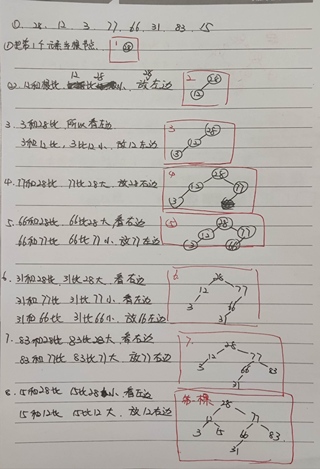 ①. 28. 12. 3. 77. 66. 31. 83. 15
①把第1个元素当根节点. 1 28
②. 12和28比 12比28小, 放28左边 2. 28
12
3. 3和28比 所以看左边 3 28
3和12比, 3比12小, 放12左边 12
3
4. 77和28比 77比28大, 放28右边 4 28
12 77
3
5. 66和28比 66比28大, 看右边 ⑤ 28
66和77比 66比77小, 放77左边 12 77
3 66
6. 31和28比 31比28大 看右边 6. 28
31和77比 31比77小. 看左边 12 77
31和66比 31比66小, 放66左边 3 66
31
7. 83和28比 83比28大 看右边 7. 28
83和77比 83比77大, 放77右边 12 77
3 66 83
31
8. 15和28比 15比28小. 看左边 28
15和12比 15比12大, 放12右边 12 77
3 15 66 83
31